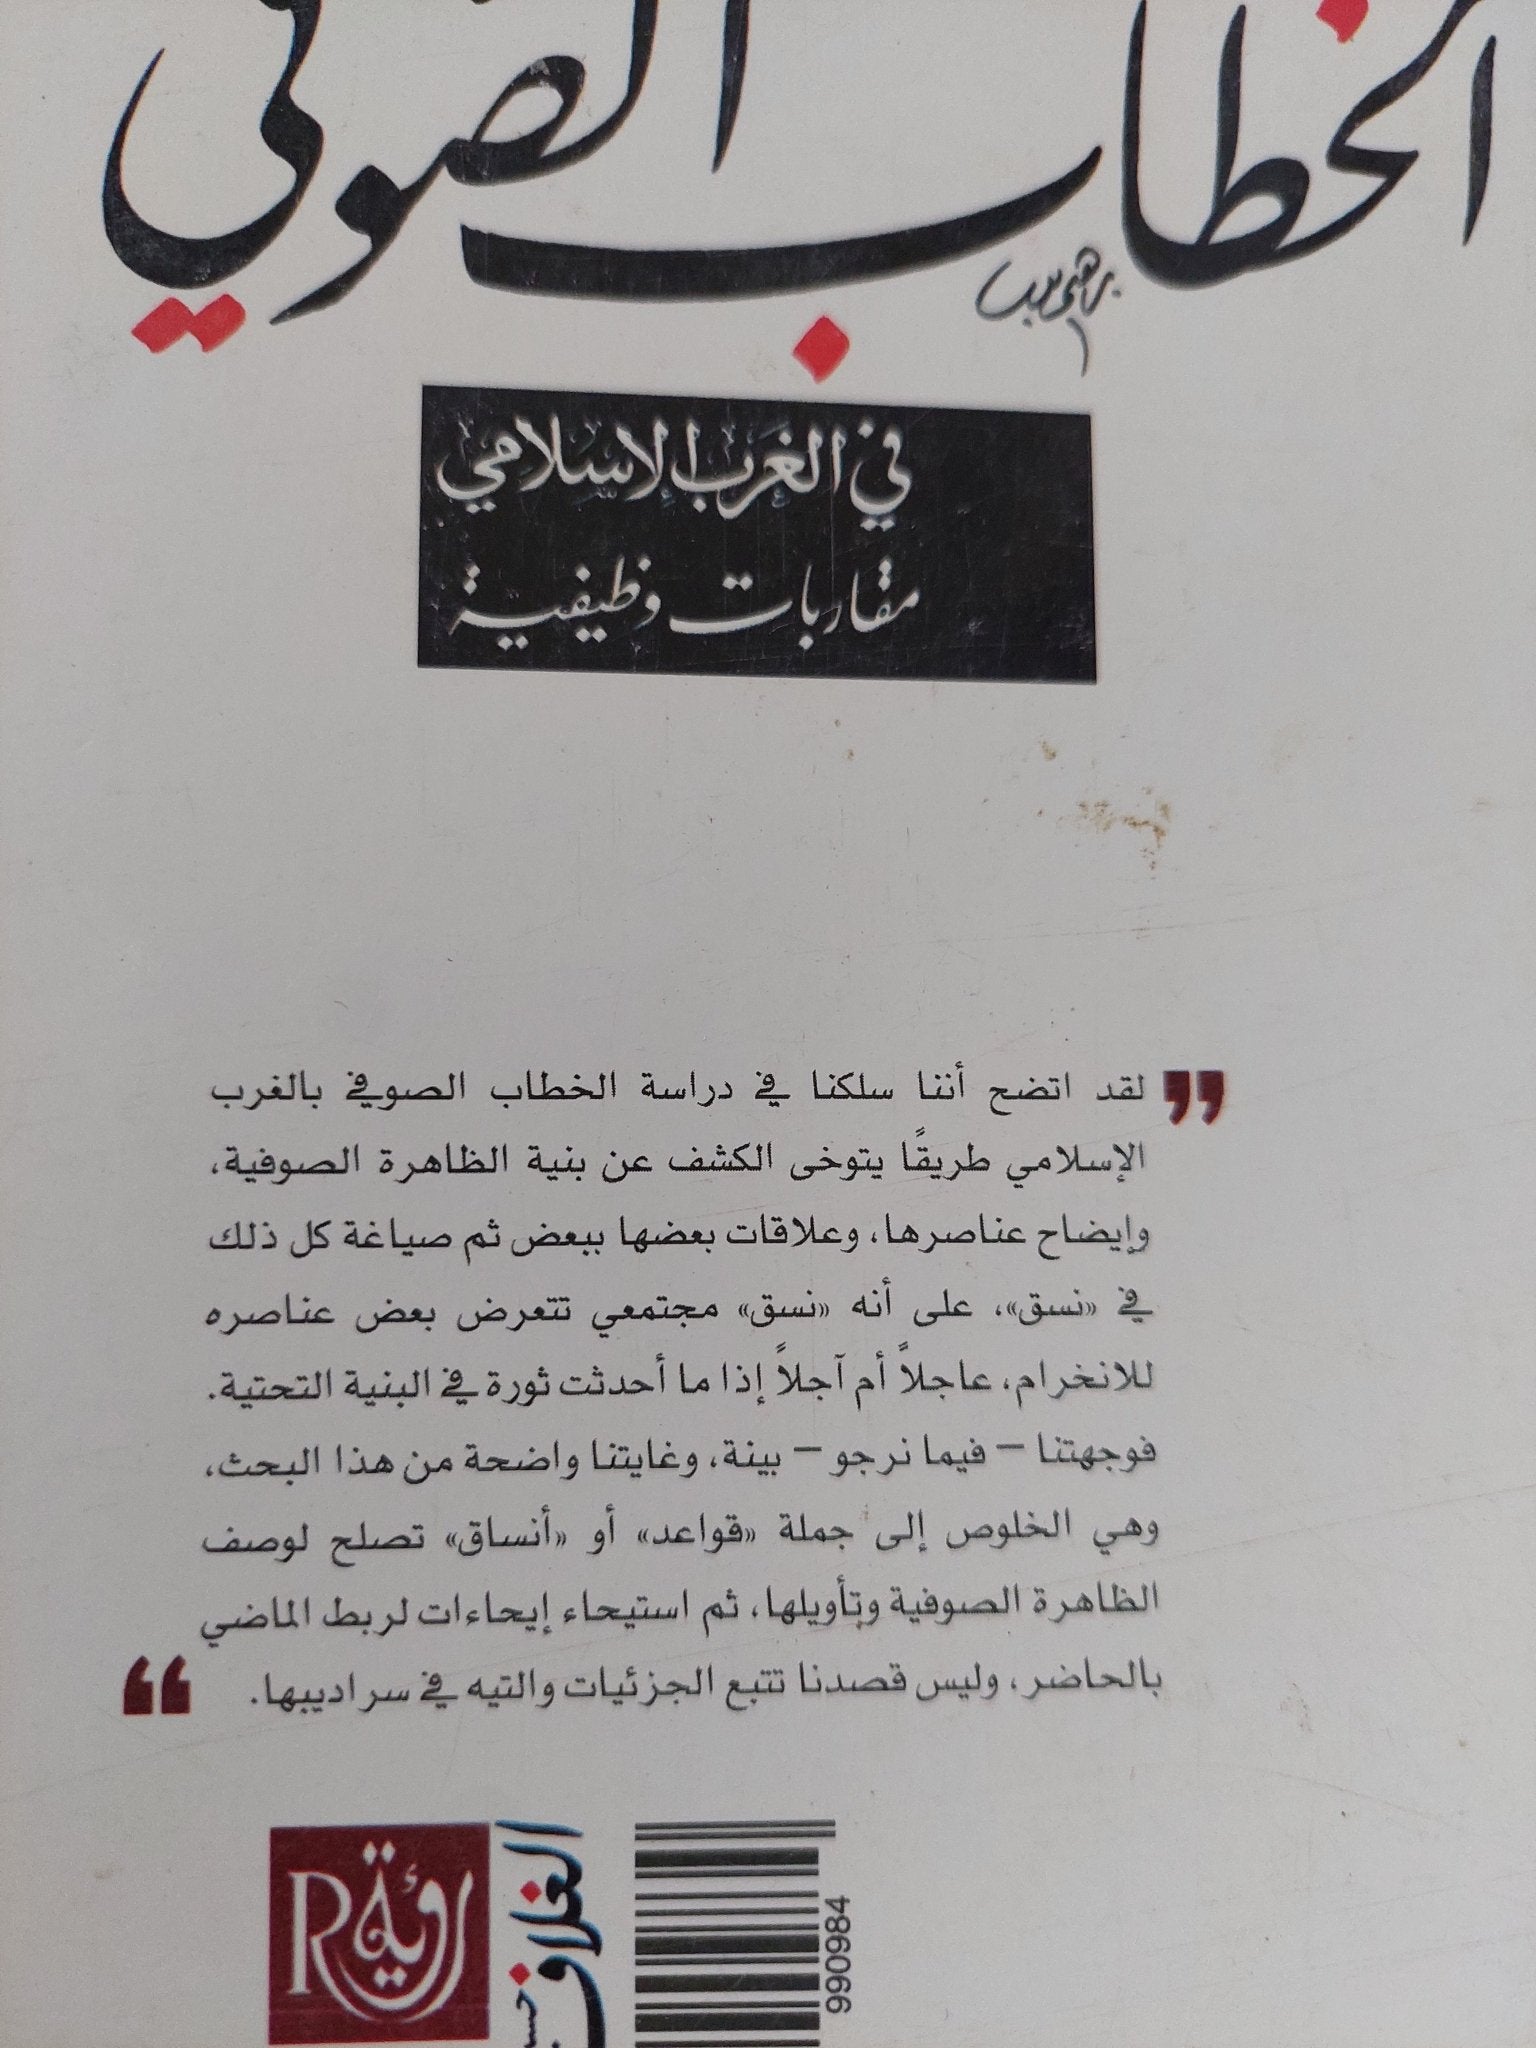 الخطاب الصوفي
في الغرب الإسلامي
مقاربات وظيفية
" لقد اتضح أننا سلكنا في دراسة الخطاب الصوفي بالغرب
الإسلامي طريقًا يتوخى الكشف عن بنية الظاهرة الصوفية،
وإيضاح عناصرها، وعلاقات بعضها ببعض ثم صياغة كل ذلك
في «نسق»، على أنه «نسق» مجتمعي تتعرض بعض عناصره
للانخرام، عاجلاً أم آجلاً إذا ما أحدثت ثورة في البنية التحتية.
فوجهتنا – فيما نرجو – بينة، وغايتنا واضحة من هذا البحث،
وهي الخلوص إلى جملة «قواعد» أو «أنساق» تصلح لوصف
الظاهرة الصوفية وتأويلها، ثم استيحاء إيحاءات لربط الماضي
بالحاضر، وليس قصدنا تتبع الجزئيات والتيه في سراديبها. "
رؤية R
الغلاف
990984